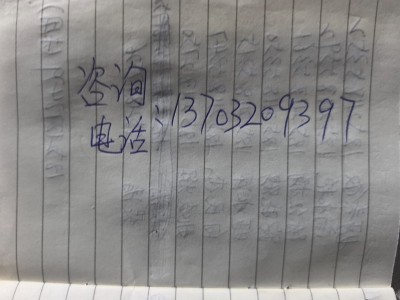 咨询
电话:13703209397